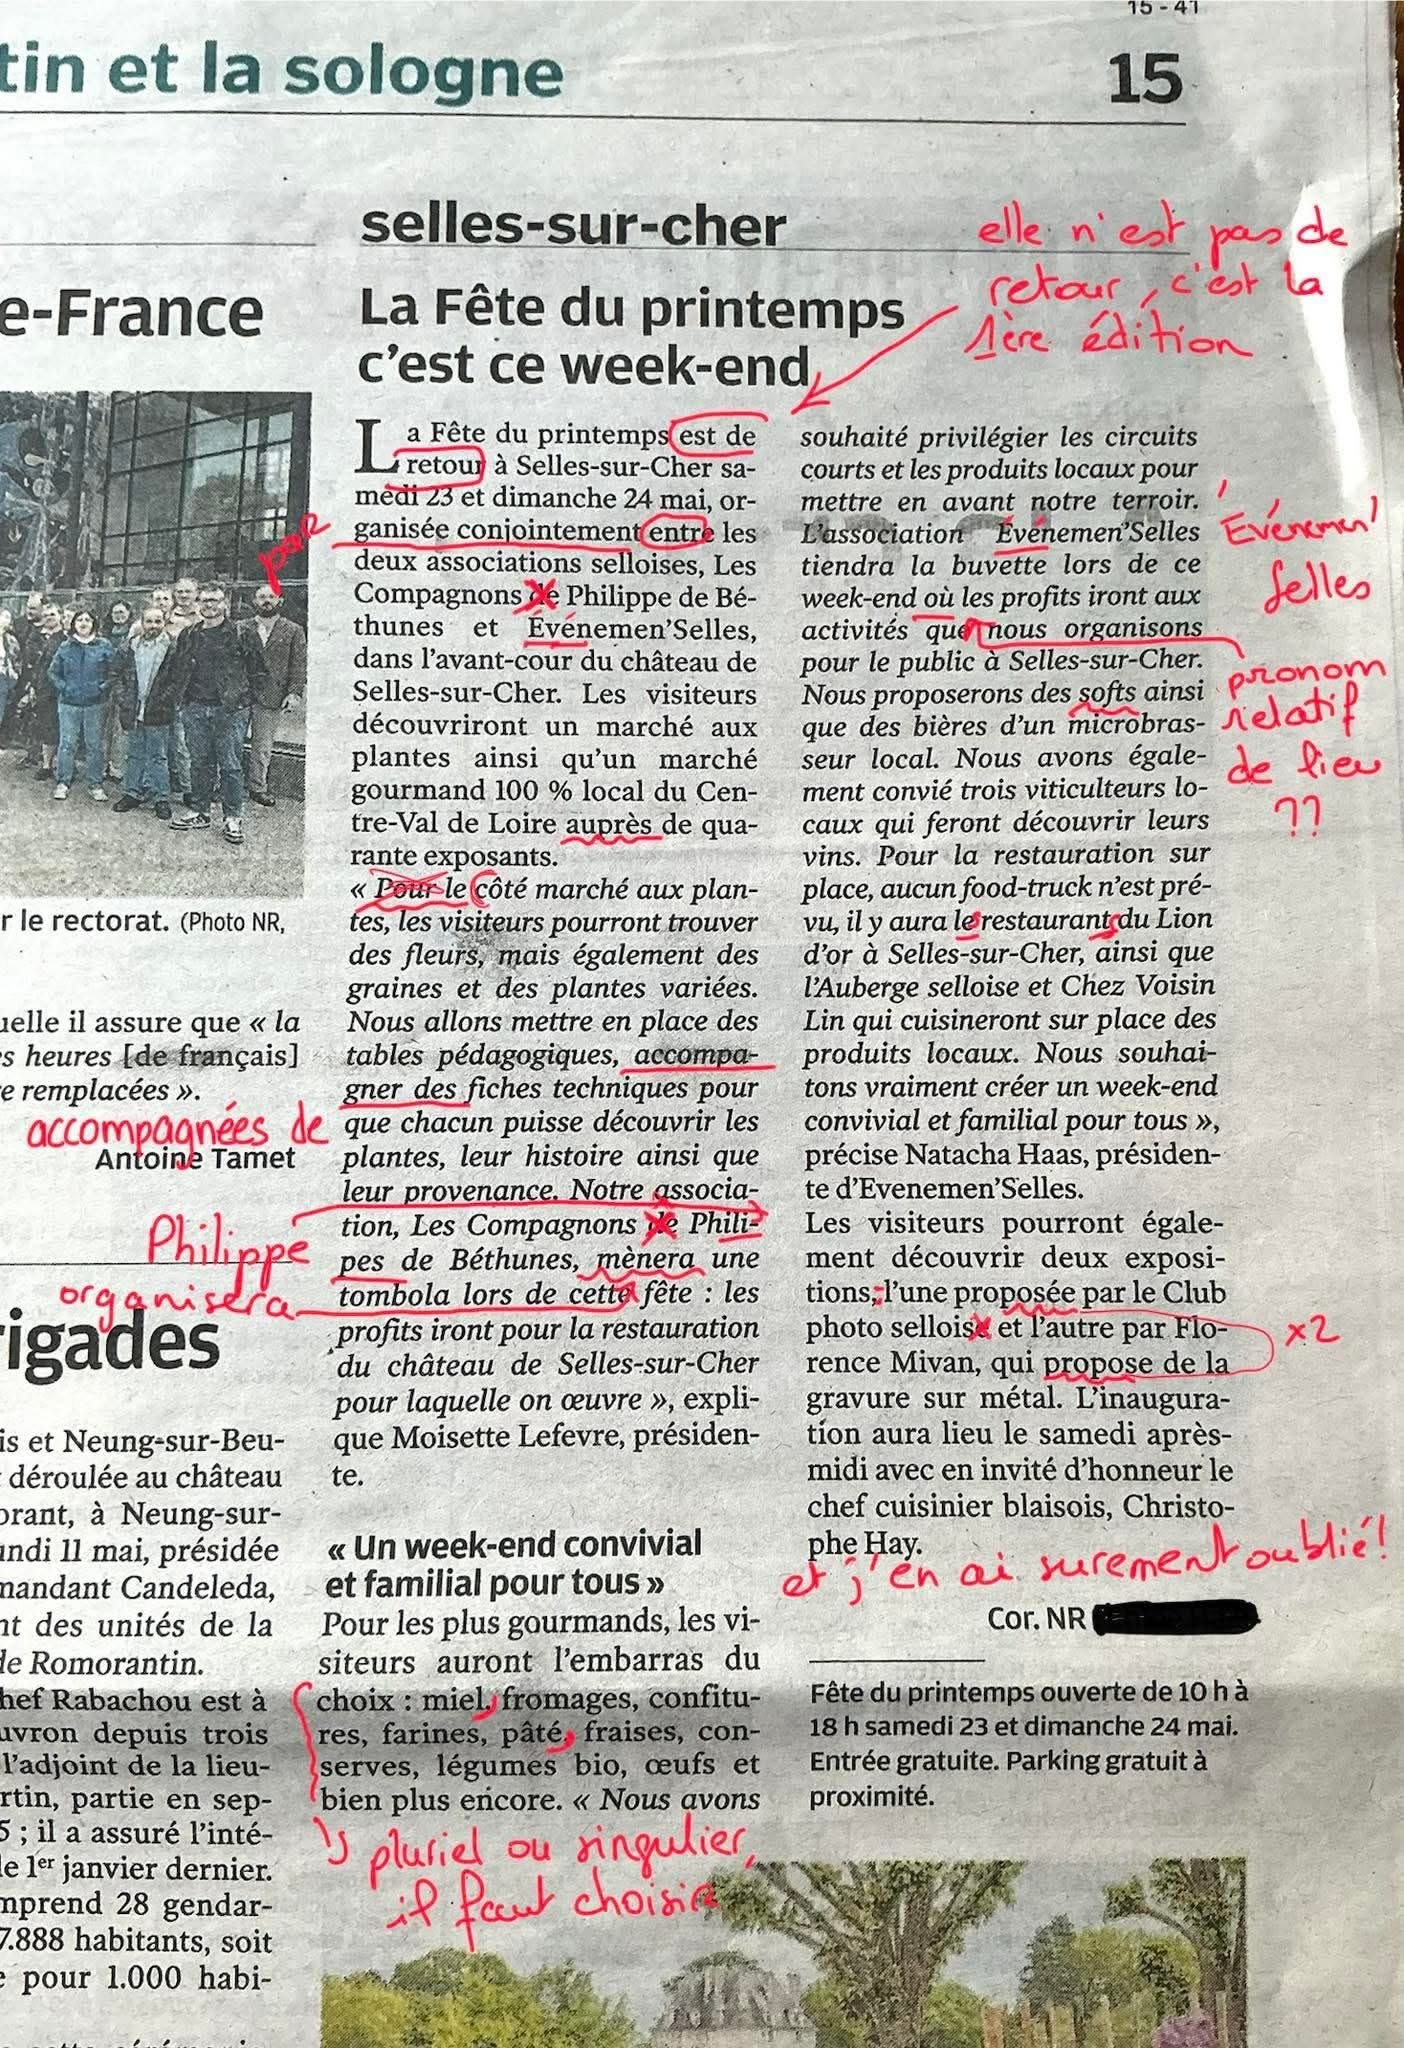 15 - 41
tin et la sologne
15
selles-sur-cher
elle n'est pas de
retour, c'est la
1ère édition
e-France
La Fête du printemps
c'est ce week-end
La Fête du printemps est de
retour à Selles-sur-Cher sa-
medi 23 et dimanche 24 mai, or-
ganisée conjointement entre les
par
deux associations selloises, Les
Compagnons de Philippe de Bé-
thunes et Événemen'Selles,
dans l'avant-cour du château de
Selles-sur-Cher. Les visiteurs
découvriront un marché aux
plantes ainsi qu'un marché
gourmand 100 % local du Cen-
tre-Val de Loire auprès de qua-
rante exposants.
« Pour le côté marché aux plan-
tes, les visiteurs pourront trouver
des fleurs, mais également des
graines et des plantes variées.
Nous allons mettre en place des
tables pédagogiques, accompa-
gner des fiches techniques pour
accompagnées de
que chacun puisse découvrir les
plantes, leur histoire ainsi que
leur provenance. Notre associa-
tion, Les Compagnons de Phili-
Philippe
pes de Béthunes, mènera une
organisera
tombola lors de cette fête : les
profits iront pour la restauration
du château de Selles-sur-Cher
pour laquelle on œuvre », expli-
que Moisette Lefevre, présiden-
te.
« Un week-end convivial
et familial pour tous »
Pour les plus gourmands, les vi-
siteurs auront l'embarras du
choix : miel, fromages, confitu-
res, farines, pâté, fraises, con-
serves, légumes bio, œufs et
bien plus encore. « Nous avons
pluriel ou singulier,
il faut choisir
souhaité privilégier les circuits
courts et les produits locaux pour
mettre en avant notre terroir.
L'association Événemen'Selles
Événemen'
Selles
tiendra la buvette lors de ce
week-end où les profits iront aux
activités que nous organisons
pronom
relatif
de lieu
??
pour le public à Selles-sur-Cher.
Nous proposerons des softs ainsi
que des bières d'un microbras-
seur local. Nous avons égale-
ment convié trois viticulteurs lo-
caux qui feront découvrir leurs
vins. Pour la restauration sur
place, aucun food-truck n'est pré-
vu, il y aura le restaurants du Lion
d'or à Selles-sur-Cher, ainsi que
l'Auberge selloise et Chez Voisin
Lin qui cuisineront sur place des
produits locaux. Nous souhai-
tons vraiment créer un week-end
convivial et familial pour tous »,
précise Natacha Haas, présiden-
te d'Evenemen'Selles.
Les visiteurs pourront égale-
ment découvrir deux exposi-
tions, l'une proposée par le Club
photo selloise et l'autre par Flo-
x2
rence Mivan, qui propose de la
gravure sur métal. L'inaugura-
tion aura lieu le samedi après-
midi avec en invité d'honneur le
chef cuisinier blaisois, Christo-
phe Hay.
et j'en ai surement oublié!
Cor. NR
Fête du printemps ouverte de 10 h à
18 h samedi 23 et dimanche 24 mai.
Entrée gratuite. Parking gratuit à
proximité.
r le rectorat. (Photo NR,
uelle il assure que « la
s heures [de français]
e remplacées ».
Antoine Tamet
rigades
is et Neung-sur-Beu-
déroulée au château
orant, à Neung-sur-
undi 11 mai, présidée
mandant Candeleda,
nt des unités de la
de Romorantin.
hef Rabachou est à
uvron depuis trois
l'adjoint de la lieu-
rtin, partie en sep-
5 ; il a assuré l'inté-
le 1er janvier dernier.
mprend 28 gendar-
7.888 habitants, soit
e pour 1.000 habi-